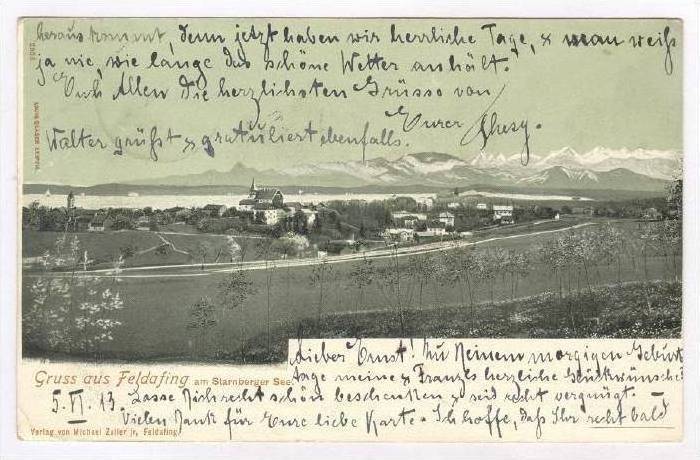 heraus kommt, denn jetzt haben wir herrliche Tage, & man weiß
ja nie, wie lange das schöne Wetter anhält.
Euch Allen die herzlichsten Grüsse von
Eurer
Walter grüßt & gratuliert ebenfalls.
Gruss aus Feldafing am Starnberger See
Lieber Ernst! Zu Deinem morgigen Geburts
tage meine & Franzls herzliche Glückwünsche!
5. VI. 13. Lasse Dich recht schön beschenken & seid recht vergnügt. –
Vielen Dank für Eure liebe Karte. Ich hoffe, daß Ihr recht bald
Verlag von Michael Zaller jr, Feldafing